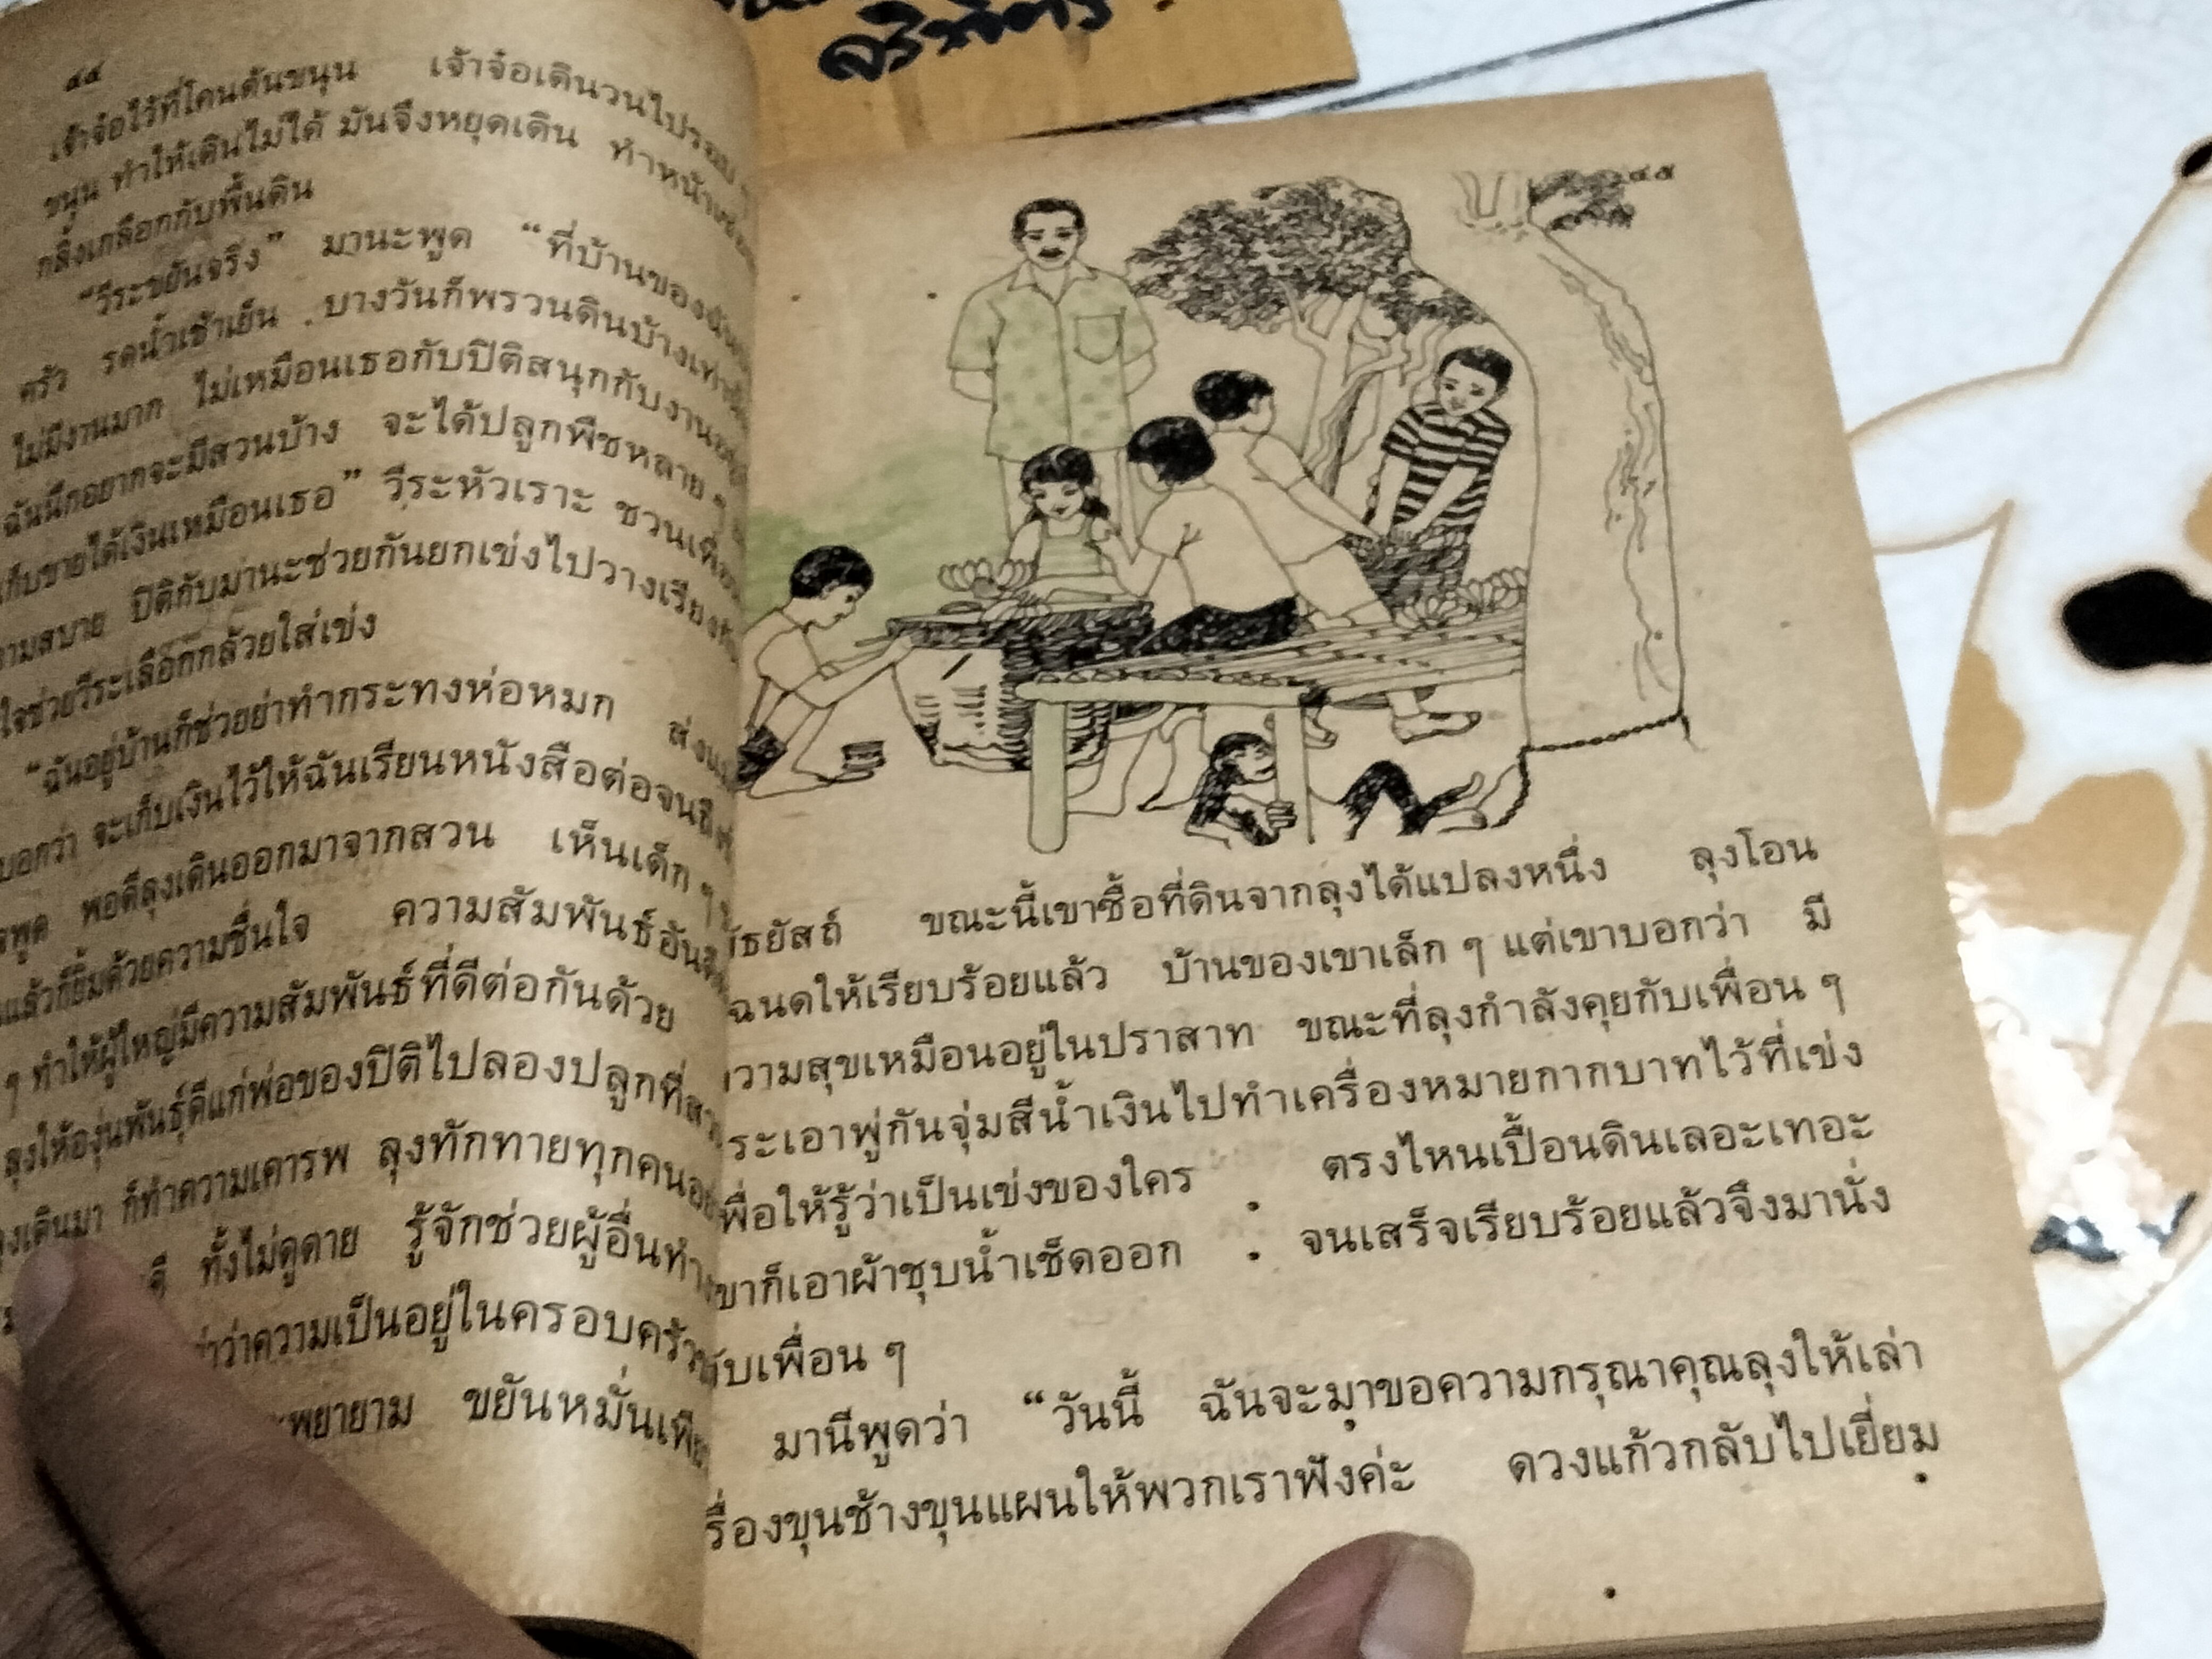 จริ
๔๔
เจ้าจ๋อไว้ที่โคนต้นขนุน เจ้าจ๋อเดินวนไปรอบ ๆ
ขนุน ทำให้เดินไม่ได้ มันจึงหยุดเดิน ทำหน้า
กลิ้งเกลือกกับพื้นดิน
“วีระขยันจริง” มานะพูด “ที่บ้านของฉัน
ครัว รดน้ำเช้าเย็น บางวันก็พรวนดินบ้างเท่านั้น
ไม่มีงานมาก ไม่เหมือนเธอกับปิติสนุกกับงาน
ฉันนึกอยากจะมีสวนบ้าง จะได้ปลูกพืชหลาย ๆ
เก็บขายได้เงินเหมือนเธอ” วีระหัวเราะ ชวนเพื่อน
ตามสบาย ปิติกับมานะช่วยกันยกเข่งไปวางเรียงกัน
ใจช่วยวีระเลือกกล้วยใส่เข่ง
“ฉันอยู่บ้านก็ช่วยย่าทำกระทงห่อหมก ส่ง
บอกว่า จะเก็บเงินไว้ให้ฉันเรียนหนังสือต่อจนถึง
พูด พอดีลุงเดินออกมาจากสวน เห็นเด็ก ๆ
แล้วก็ยิ้มด้วยความชื่นใจ ความสัมพันธ์อัน
ๆ ทำให้ผู้ใหญ่มีความสัมพันธ์ที่ดีต่อกันด้วย
ลุงให้องุ่นพันธุ์ดีแก่พ่อของปิติไปลองปลูกที่สวน
ลุงเดินมา ก็ทำความเคารพ ลุงทักทายทุกคน
ดี ทั้งไม่ดูดาย รู้จักช่วยผู้อื่นทำ
ว่าความเป็นอยู่ในครอบครัว
พยายาม ขยันหมั่นเพียร
๔๕
ธยัสถ์ ขณะนี้เขาซื้อที่ดินจากลุงได้แปลงหนึ่ง ลุงโอน
ฉนดให้เรียบร้อยแล้ว บ้านของเขาเล็ก ๆ แต่เขาบอกว่า มี
วามสุขเหมือนอยู่ในปราสาท ขณะที่ลุงกำลังคุยกับเพื่อน ๆ
ระเอาพู่กันจุ่มสีน้ำเงินไปทำเครื่องหมายกากบาทไว้ที่เข่ง
พื่อให้รู้ว่าเป็นเข่งของใคร ตรงไหนเปื้อนดินเลอะเทอะ
ขาก็เอาผ้าชุบน้ำเช็ดออก จนเสร็จเรียบร้อยแล้วจึงมานั่ง
ับเพื่อน ๆ
มานีพูดว่า “วันนี้ ฉันจะมาขอความกรุณาคุณลุงให้เล่า
รื่องขุนช้างขุนแผนให้พวกเราฟังค่ะ ดวงแก้วกลับไปเยี่ยม